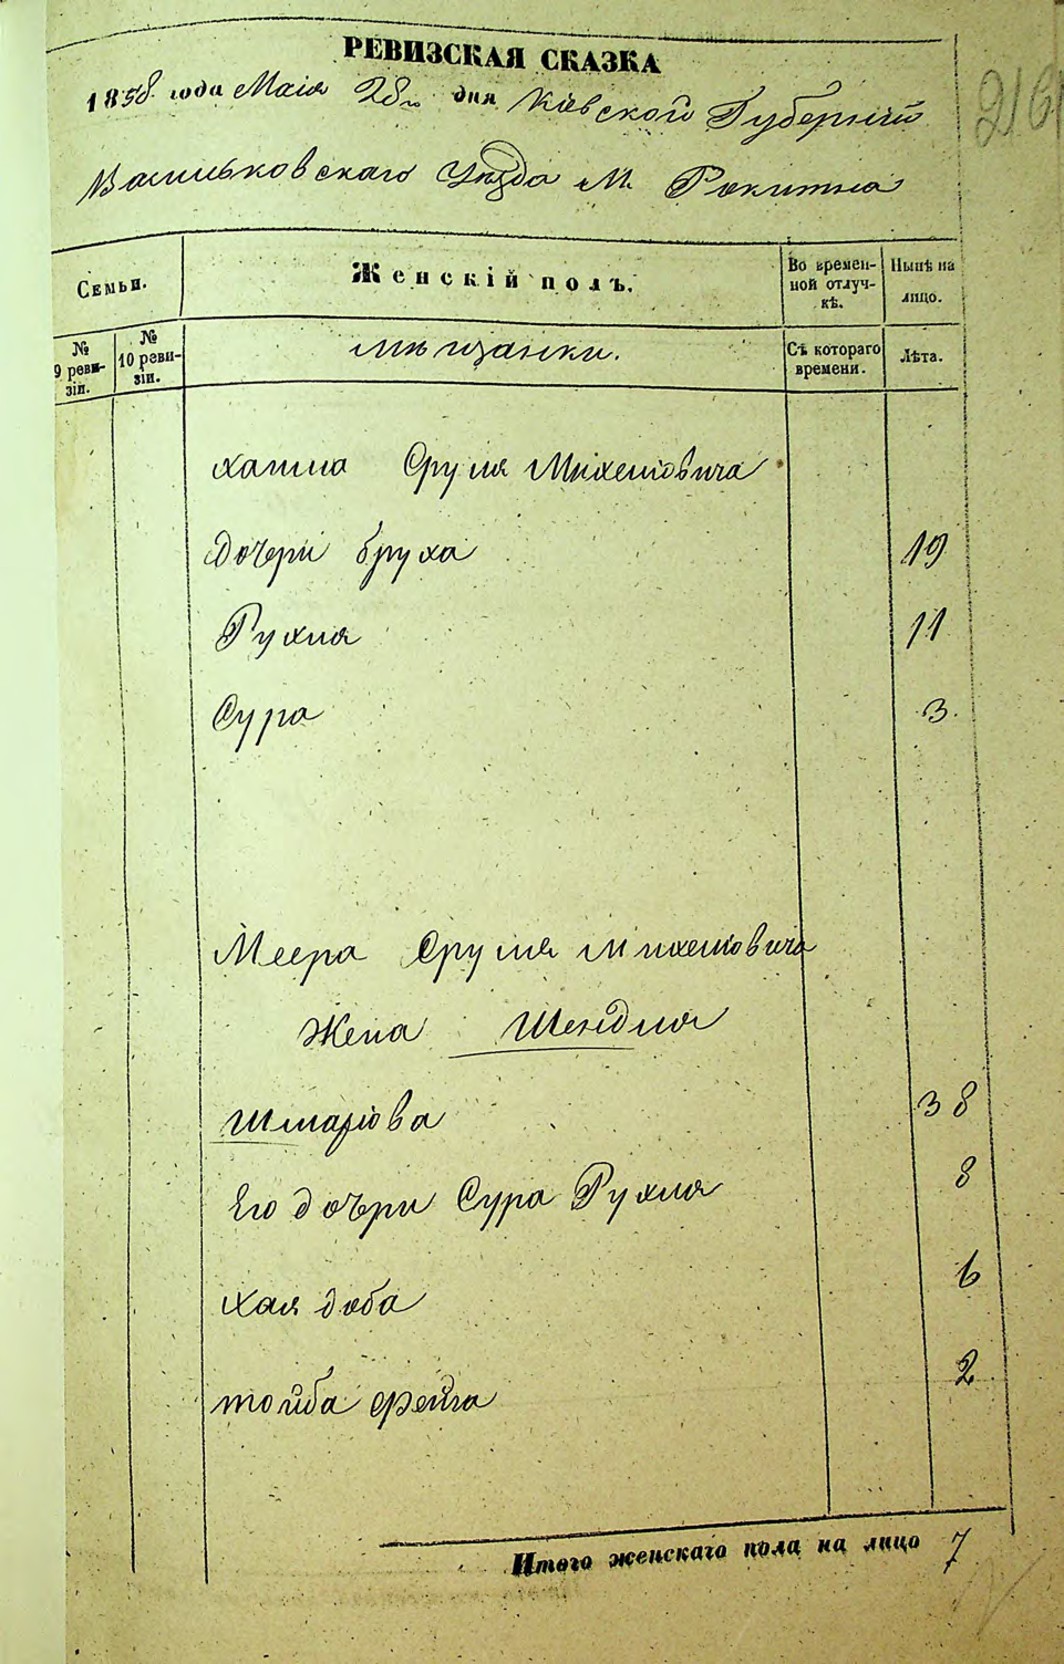 РЕВИЗСКАЯ СКАЗКА
1858 года Маія 28го дня Кіевской Губерніи
216
Васильковскаго Уѣзда М. Рокитна
Семьи.
Женскій полъ.
Во времен-
ной отлуч-
кѣ.
Нынѣ на
лицо.
№
9 реви-
зіи.
№
10 реви-
зіи.
мѣщанки.
Съ котораго
времени.
Лѣта.
Сруля Михелиовича
дочери бруха 19
Рухля 11
Сура 3.
Меера Сруля Михелиовича
Жена Шендля
38
Его дочери Сура Рухля 8
хая доба 6
тойба фейга 2
Итого женскаго пола на лицо 7